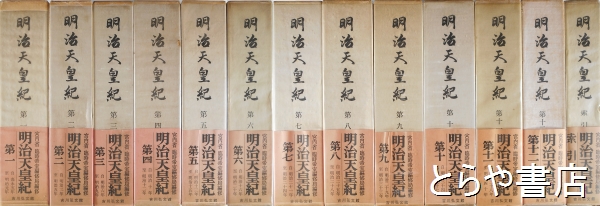 明治天皇紀 第一
明治天皇紀 第二
明治天皇紀 第三
明治天皇紀 第四
明治天皇紀 第五
明治天皇紀 第六
明治天皇紀 第七
明治天皇紀 第八
明治天皇紀 第九
明治天皇紀 第十
明治天皇紀 第十
明治天皇紀 第十
明治天皇紀 索引
明治天皇紀 第一
明治天皇紀 第二
明治天皇紀 第三
明治天皇紀 第四
明治天皇紀 第五
明治天皇紀 第六
明治天皇紀 第七
明治天皇紀 第八
明治天皇紀 第九
明治天皇紀 第十
明治天皇紀 第十一
明治天皇紀 第十二
明治天皇紀 索引
吉川弘文館
とらや書店